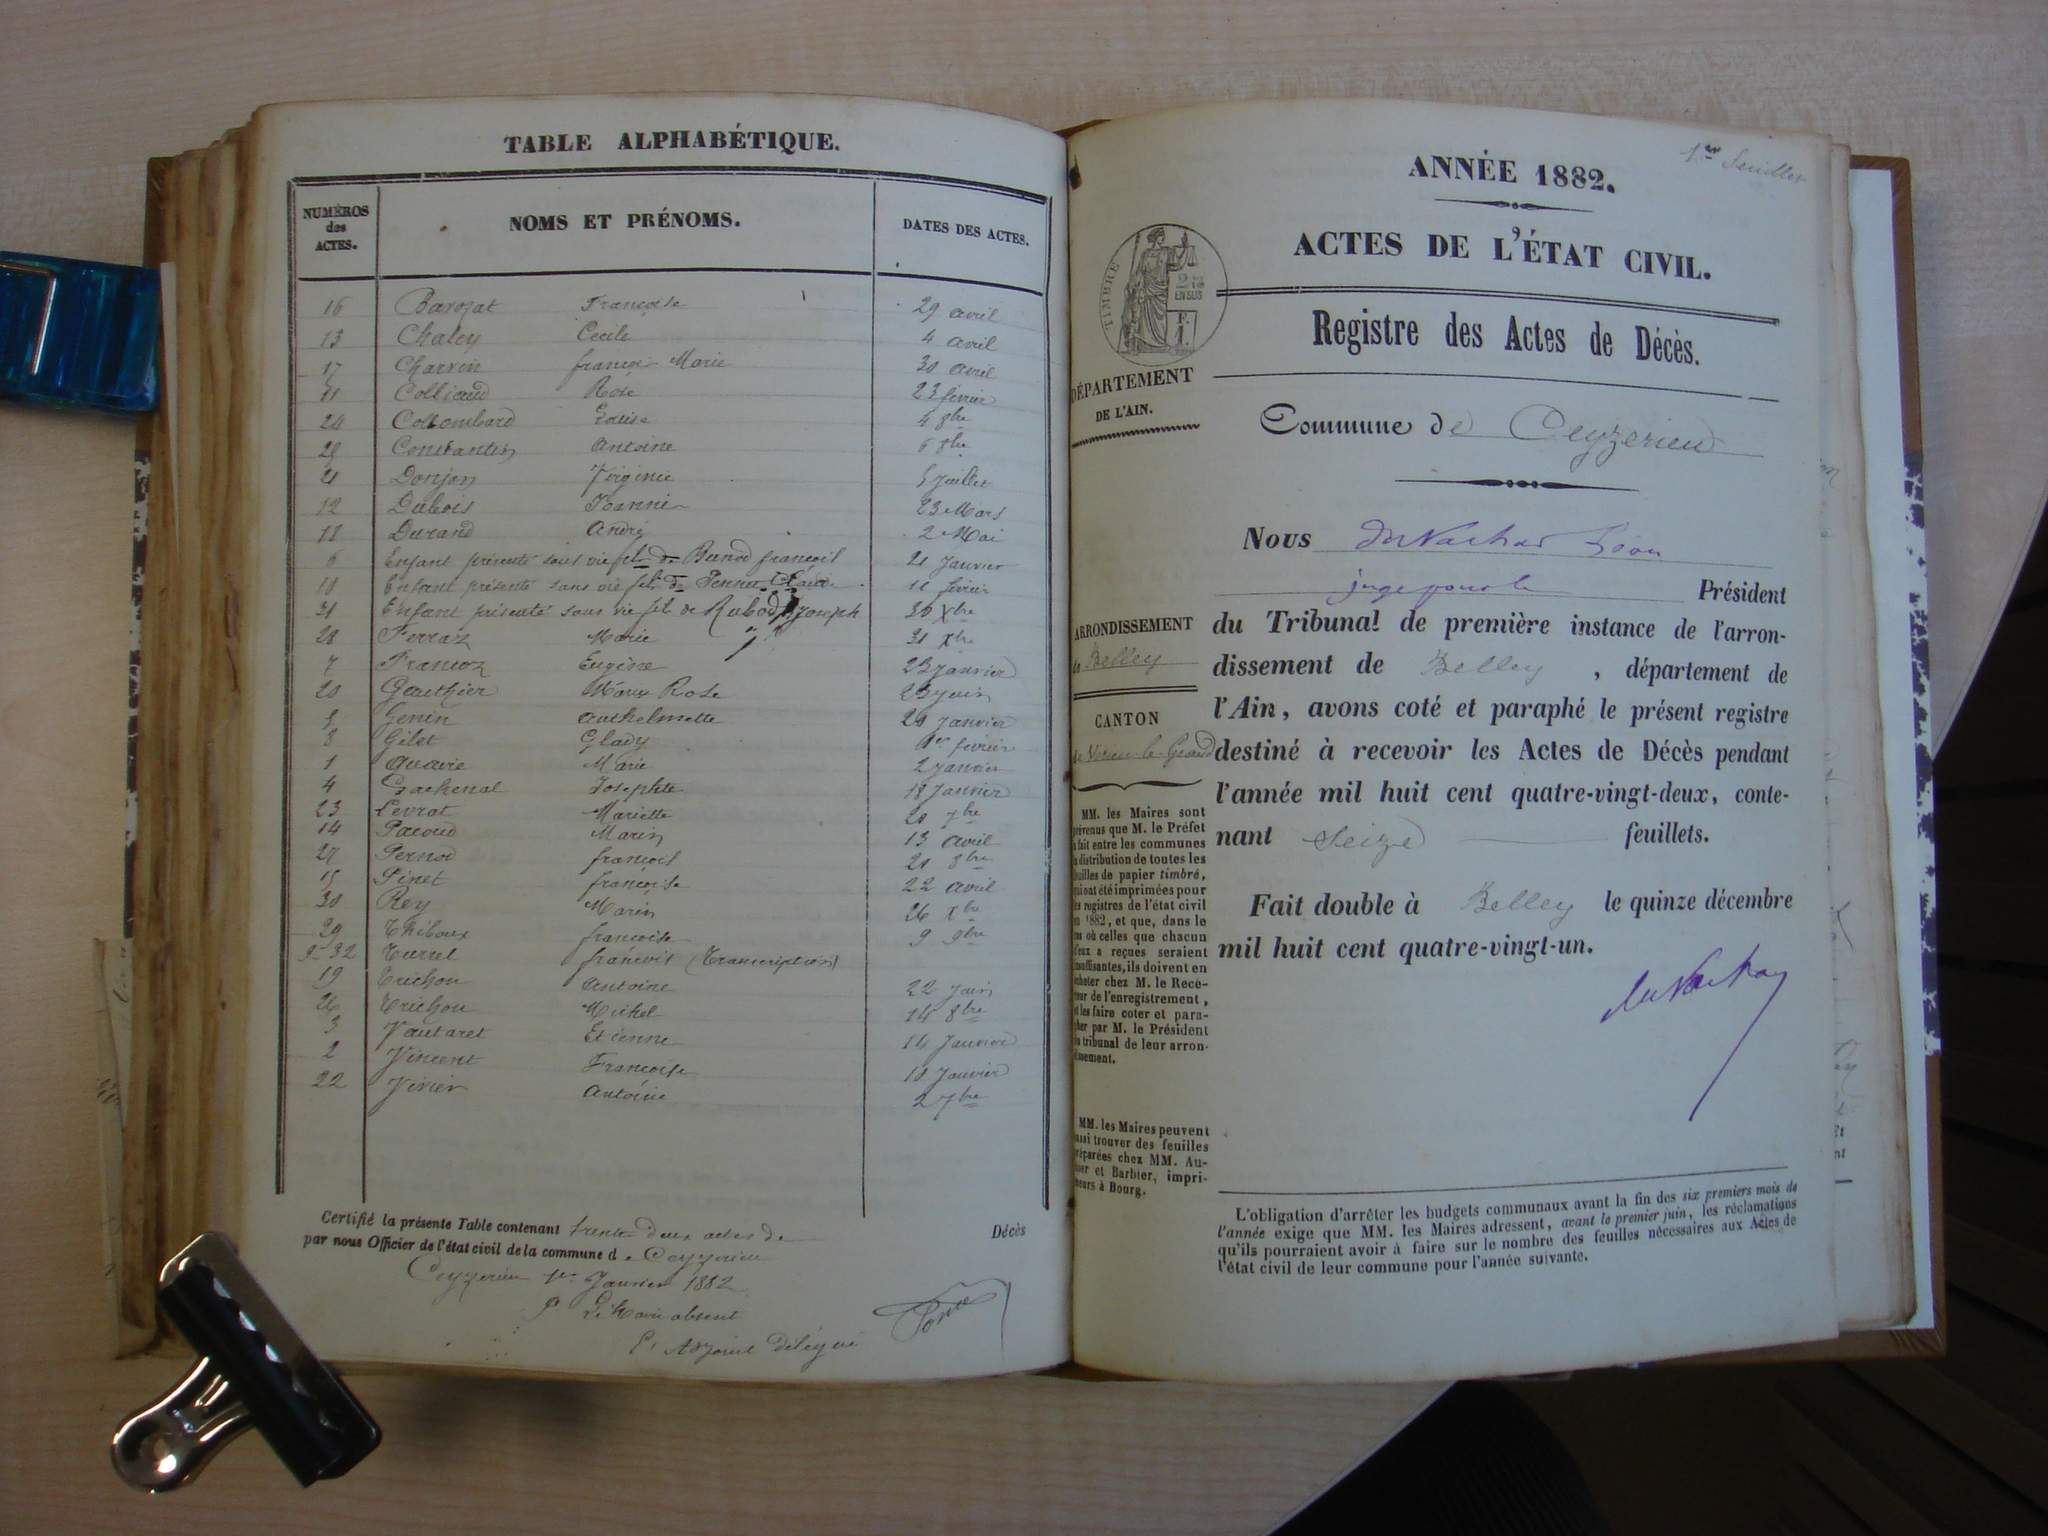 TABLE ALPHABÉTIQUE.
NUMÉROS des ACTES. NOMS ET PRÉNOMS. DATES DES ACTES.
16 Françoise 29 avril
13 Chaley Cecile 4 avril
17 Charvin françois Marie 30 avril
11 Colliaud Rose 23 février
24 Collombard Louise 4 8bre
Constantin Antoine 6 8bre
21 Donjon Virginie 5 Juillet
12 Dubois 23 Mars
18 Durand André 2 Mai
6 Enfant présenté sans vie fils de Bunod françois 21 Janvier
10 Enfant présenté sans vie fils de 11 février
31 Enfant présenté sans vie fils de Rubod Joseph 30 Xbre
28 Ferraz Marie 31 Xbre
7 Francoz Eugène 23 Janvier
20 Gauthier Marie Rose 23 Juin
5 Genin Anthelmette 20 Janvier
8 Gilet Glady 1er février
1 Marie 2 Janvier
4 Gachenal Josephte 18 Janvier
23 Levrat Mariette 20 7bre
14 Pacoud Marin 13 avril
27 Pernod françois 21 8bre
15 Pinet françoise 22 avril
30 Rey Marin 26 Xbre
29 Thiboux françoise 9 9bre
32 Turrel françois (Transcription)
19 Truchon Antoine 22 Juin
26 Truchon Michel 14 8bre
3 Vautaret Etienne 14 Janvier
2 Vincent Françoise 10 Janvier
22 Vivier Antoine 2 7bre
Certifié la présente Table contenant trente deux actes de Décès
par nous Officier de l'état civil de la commune de Ceyzerieu
Ceyzerieu 1er Janvier 1882
P. Le Maire absent
L'Adjoint Délégué
1er feuillet
ANNÉE 1882.
ACTES DE L'ÉTAT CIVIL.
TIMBRE
2
EN SUS
F.
1.
Registre des Actes de Décès.
DÉPARTEMENT
DE L'AIN.
Commune de Ceyzerieu
Nous
juge pour le Président
ARRONDISSEMENT
de Belley
CANTON
de Virieu-le-Grand
du Tribunal de première instance de l'arron-
dissement de Belley, département de
l'Ain, avons coté et paraphé le présent registre
destiné à recevoir les Actes de Décès pendant
l'année mil huit cent quatre-vingt-deux, conte-
nant seize feuillets.
Fait double à Belley le quinze décembre
mil huit cent quatre-vingt-un.
MM. les Maires sont
prévenus que M. le Préfet
a fait entre les communes
la distribution de toutes les
feuilles de papier timbré,
qui ont été imprimées pour
les registres de l'état civil
en 1882, et que, dans le
cas où celles que chacun
d'eux a reçues seraient
insuffisantes, ils doivent en
acheter chez M. le Rece-
veur de l'enregistrement,
et les faire coter et para-
pher par M. le Président
du tribunal de leur arron-
dissement.
MM. les Maires peuvent
aussi trouver des feuilles
préparées chez MM. Au-
et Barbier, impri-
meurs à Bourg.
L'obligation d'arrêter les budgets communaux avant la fin des six premiers mois de
l'année exige que MM. les Maires adressent, avant le premier juin, les réclamations
qu'ils pourraient avoir à faire sur le nombre des feuilles nécessaires aux Actes de
l'état civil de leur commune pour l'année suivante.